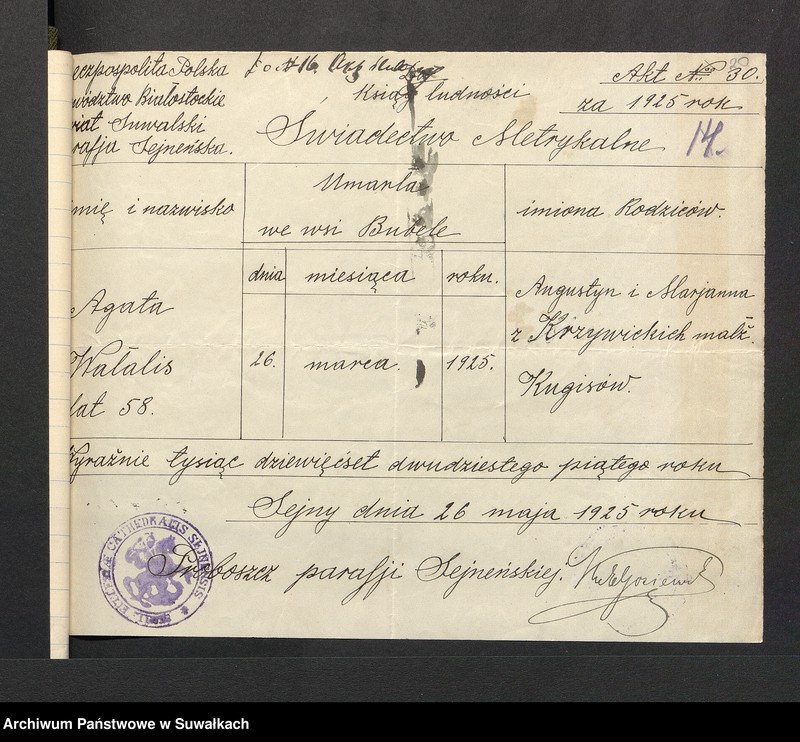 eczpospolita Polska
Akt №: 30.
wództwo Białostockie
Ksiąg ludności
za 1925 rok
iat Suwalski
Świadectwo Metrykalne
14.
rafja Sejneńska.
mię i nazwisko
Umarła
we wsi Bubele
imiona Rodziców.
dnia miesiąca roku.
Agata
Watalis
lat 58.
26. marca. 1925.
Augustyn i Marjanna
z Krzywickich małż.
Kugisów.
Wyraźnie tysiąc dziewięćset dwudziestego piątego roku
Sejny dnia 26 maja 1925 roku
Proboszcz parafji Sejneńskiej.
CATHEDRALIS SEJNENSIS
Archiwum Państwowe w Suwałkach